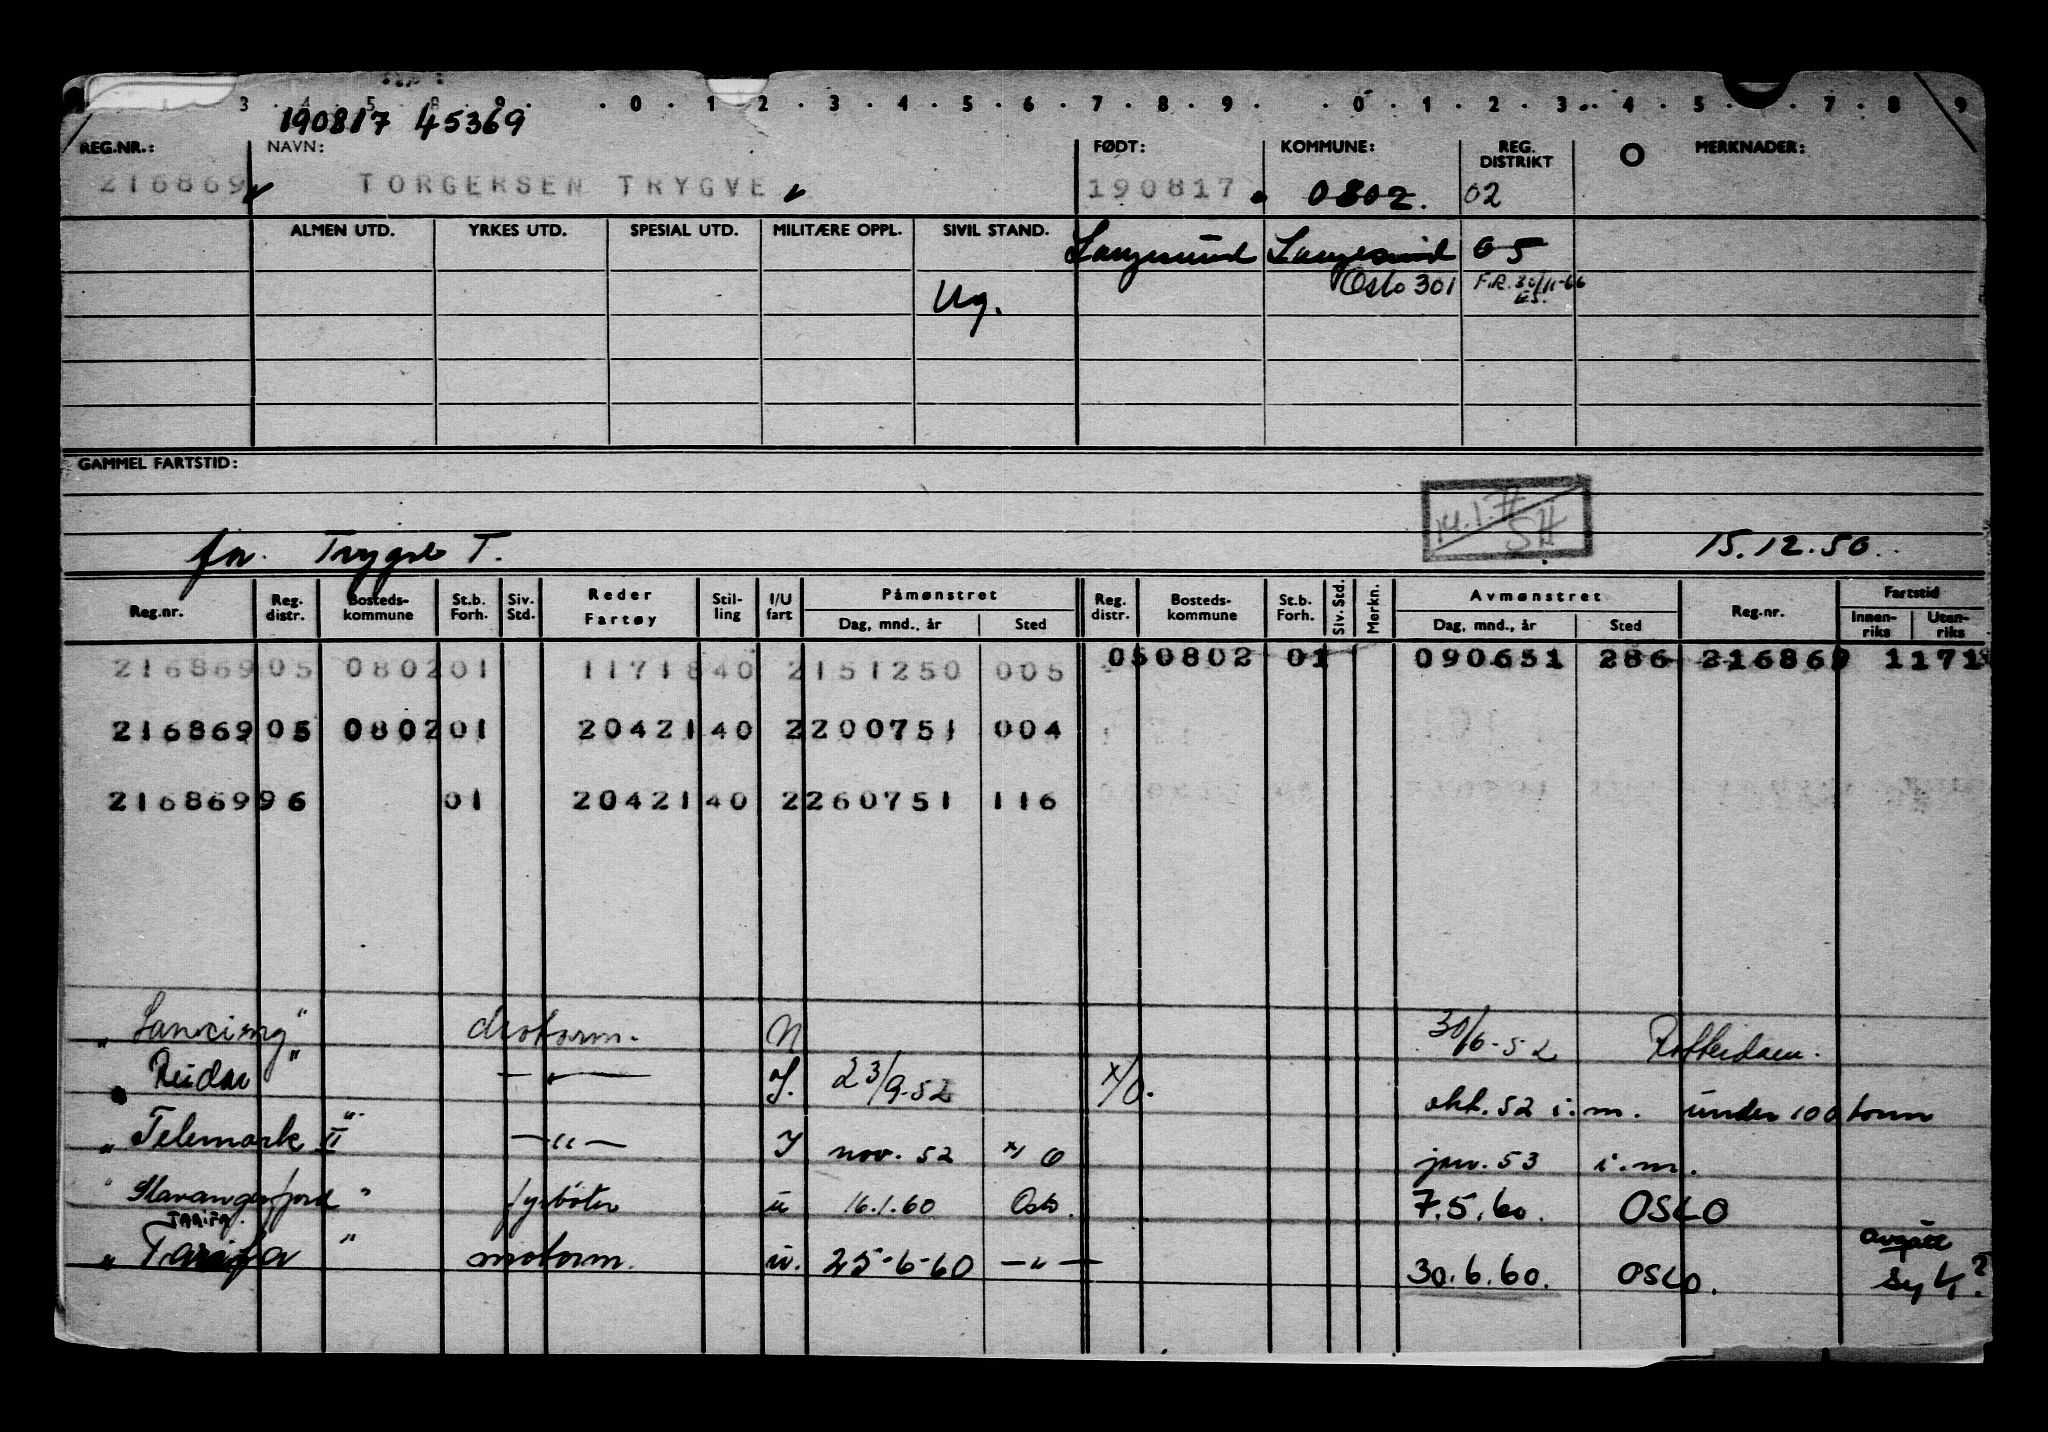 3 . 4 . 5 . 8 . 9 . . 0 . 1 . 2 . 3 . 4 . 5 . 6 . 7 . 8 . 9 . . 0 . 1 . 2 . 3 . 4 . 5 . 7 . 8 . 9
190817 45369
REG.NR.: NAVN: FØDT: KOMMUNE: REG. DISTRIKT O MERKNADER:
216869 TORGERSEN TRYGVE 190817 0802. 02
ALMEN UTD. YRKES UTD. SPESIAL UTD. MILITÆRE OPPL. SIVIL STAND. Langesund Langesund 05
Ug. Oslo 301 F.R. 30/11-66
GAMMEL FARTSTID:
14.1.71 SH
fn. Trygve T. 15.12.50
Reg.nr. Reg. distr. Bosteds- kommune St.b. Forh. Siv. Std. Reder Fartøy Stil- ling I/U fart Påmønstret Dag, mnd., år Sted Reg. distr. Bosteds- kommune St.b. Forh. Siv. Std. Merkn. Avmønstret Dag, mnd., år Sted Reg.nr. Fartstid Innen- riks Uten- riks
216869 05 0802 01 11718 40 2 151250 005 05 0802 01 090651 286 216869 1171
216869 05 0802 01 20421 40 2 200751 004
216869 96 01 20421 40 2 260751 116
" Lancing" U 30/6-52 Rotterdam.
" Reidar" — " — I. 23/9-52 x/O. okt. 52 i.m. under 100 tonn
" Telemark II" — " — I nov. 52 x/O jan. 53 i.m.
" Stavangerfjord " fyrbøter u 16.1.60 Oslo. 7.5.60. OSLO
TARIFA.
" Tarifa " motorm. u. 25-6-60 — " — 30.6.60. OSLO. avgått syk?